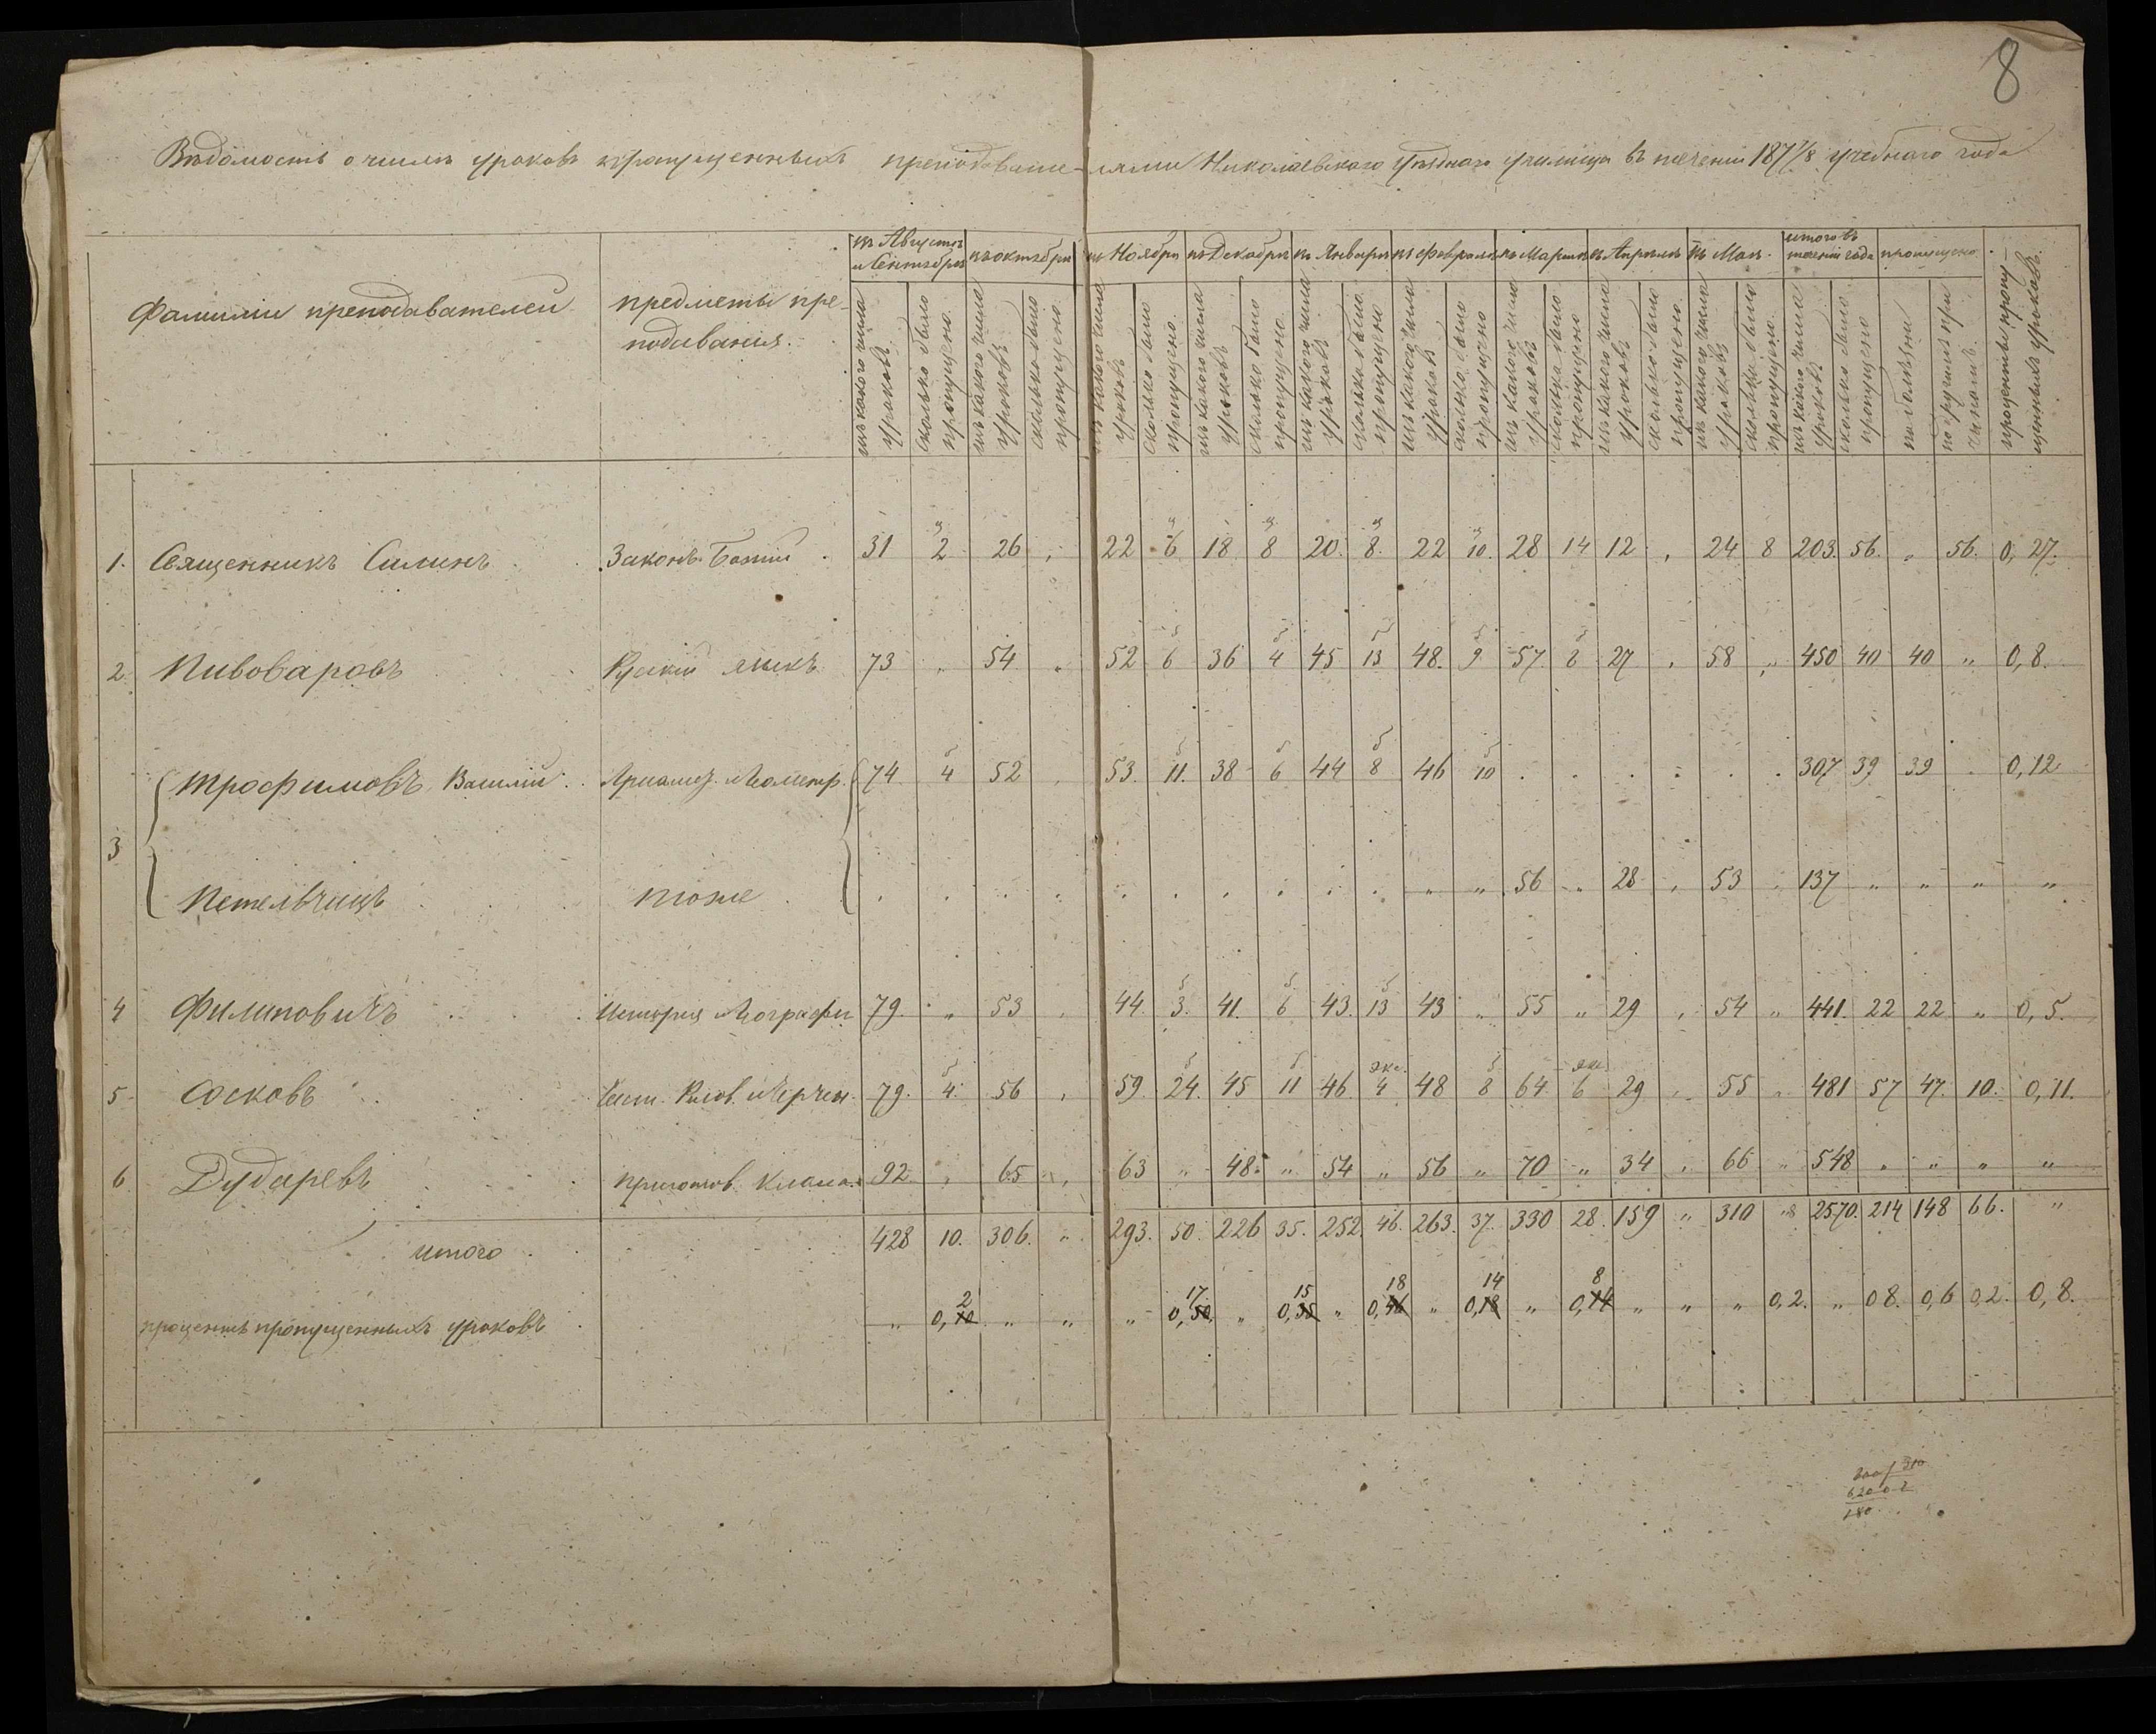 8
Вѣдомость о числѣ уроковъ пропущенныхъ преподавате-лями Николаевскаго Уѣзднаго училища въ теченіи 187 7/8 учебнаго года
Фамиліи преподавателей
предметы пре-
подаванія.
въ Августѣ
и Сентябрѣ
въ октябрѣ
въ Ноябрѣ
въ Декабрѣ
въ Январѣ
въ Февралѣ
въ Мартѣ
въ Апрѣлѣ
въ Маѣ.
итого въ
теченіи года
пропущено
изъ какого числа уроковъ
сколько было пропущено.
изъ какого числа уроковъ
сколько было пропущено
изъ какого числа уроковъ
сколько было пропущено.
изъ какого числа уроковъ
сколько было пропущено.
изъ какого числа уроковъ
сколько было пропущено
изъ какого числа уроковъ
сколько было пропущено
изъ какого числа уроковъ
сколько было пропущено
изъ какого числа уроковъ
сколько было пропущено.
изъ какого числа уроковъ
сколько было пропущено.
изъ какого числа уроковъ
сколько было пропущено
по болѣзни
по другимъ при чинамъ.
проценты пропу-
щенныхъ уроковъ.
1. Священникъ Силинъ Законъ Божій 31 2 26 „ 22 6 18 8 20 8. 22 10. 28 14 12 „ 24 8 203. 56. „ 56. 0,27.
2. Пивоваровъ Рускій языкъ 73 „ 54 „ 52 6 36 4 45 13 48. 9 57 8 27 „ 58 „ 450 40 40 „ 0,8.
3 Трофимовъ Василій Ариѳмет. и Геометр. 74 4 52 53. 11. 38 6 44 8 46 10 307 39 39 0,12
Петельчицъ тоже „ „ 56 „ 28 „ 53 137 „ „ „ „
4 Филиповичъ Исторія и Географ 79. „ 53 44. 3. 41. 6 43. 13 43 „ 55 „ 29 „ 54 „ 441. 22 22 „ 0,5.
5 Сосковъ Чист. Рисов. и Черчен. 79. 4. 56 „ 59. 24. 45 11 46 4 48 8 64 6 29 55 481 57 47. 10. 0,11.
6 Дударевъ Приготов. классъ 92 „ 65 „ 63 „ 48. „ 54 „ 56 „ 70 „ 34 „ 66 „ 548 „ „ „ „
итого 428 10. 306. „ 293. 50. 226 35. 252. 46. 263. 37. 330 28. 159 „ 310 „8 2570. 214 148 66. „
2 17 15 18 14 8
процентъ пропущенныхъ уроковъ „ 0,10 „ „ „ 0,50 „ 0,35 „ 0,46 „ 0,18 „ 0,14 „ „ „ 0,2. „ 08. 0,6 0,2. 0,8.
800 310
620 0 2
180